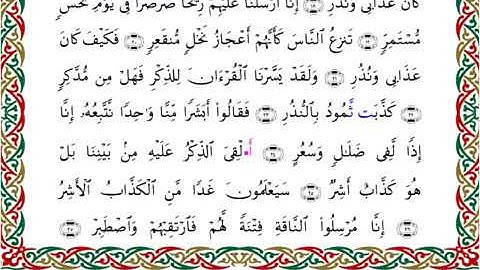 كَانَ عَذَابِى وَنُذُرِ ١٨ إِنَّآ أَرْسَلْنَا عَلَيْهِمْ رِيحًا صَرْصَرًا فِى يَوْمِ نَحْسٍ
مُّسْتَمِرٍّ ١٩ تَنزِعُ النَّاسَ كَأَنَّهُمْ أَعْجَازُ نَخْلٍ مُّنقَعِرٍ ٢٠ فَكَيْفَ كَانَ
عَذَابِى وَنُذُرِ ٢١ وَلَقَدْ يَسَّرْنَا الْقُرْءَانَ لِلذِّكْرِ فَهَلْ مِن مُّدَّكِرٍ
٢٢ كَذَّبَت ثَّمُودُ بِالنُّذُرِ ٢٣ فَقَالُوٓا۟ أَبَشَرًا مِّنَّا وَٰحِدًا نَّتَّبِعُهُۥٓ إِنَّآ
إِذًا لَّفِى ضَلَٰلٍ وَسُعُرٍ ٢٤ أَ۬لْقِىَ الذِّكْرُ عَلَيْهِ مِنۢ بَيْنِنَا بَلْ
هُوَ كَذَّابٌ أَشِرٌ ٢٥ سَيَعْلَمُونَ غَدًا مَّنِ الْكَذَّابُ الْأَشِرُ
٢٦ إِنَّا مُرْسِلُوا۟ النَّاقَةِ فِتْنَةً لَّهُمْ فَارْتَقِبْهُمْ وَاصْطَبِرْ ٢٧